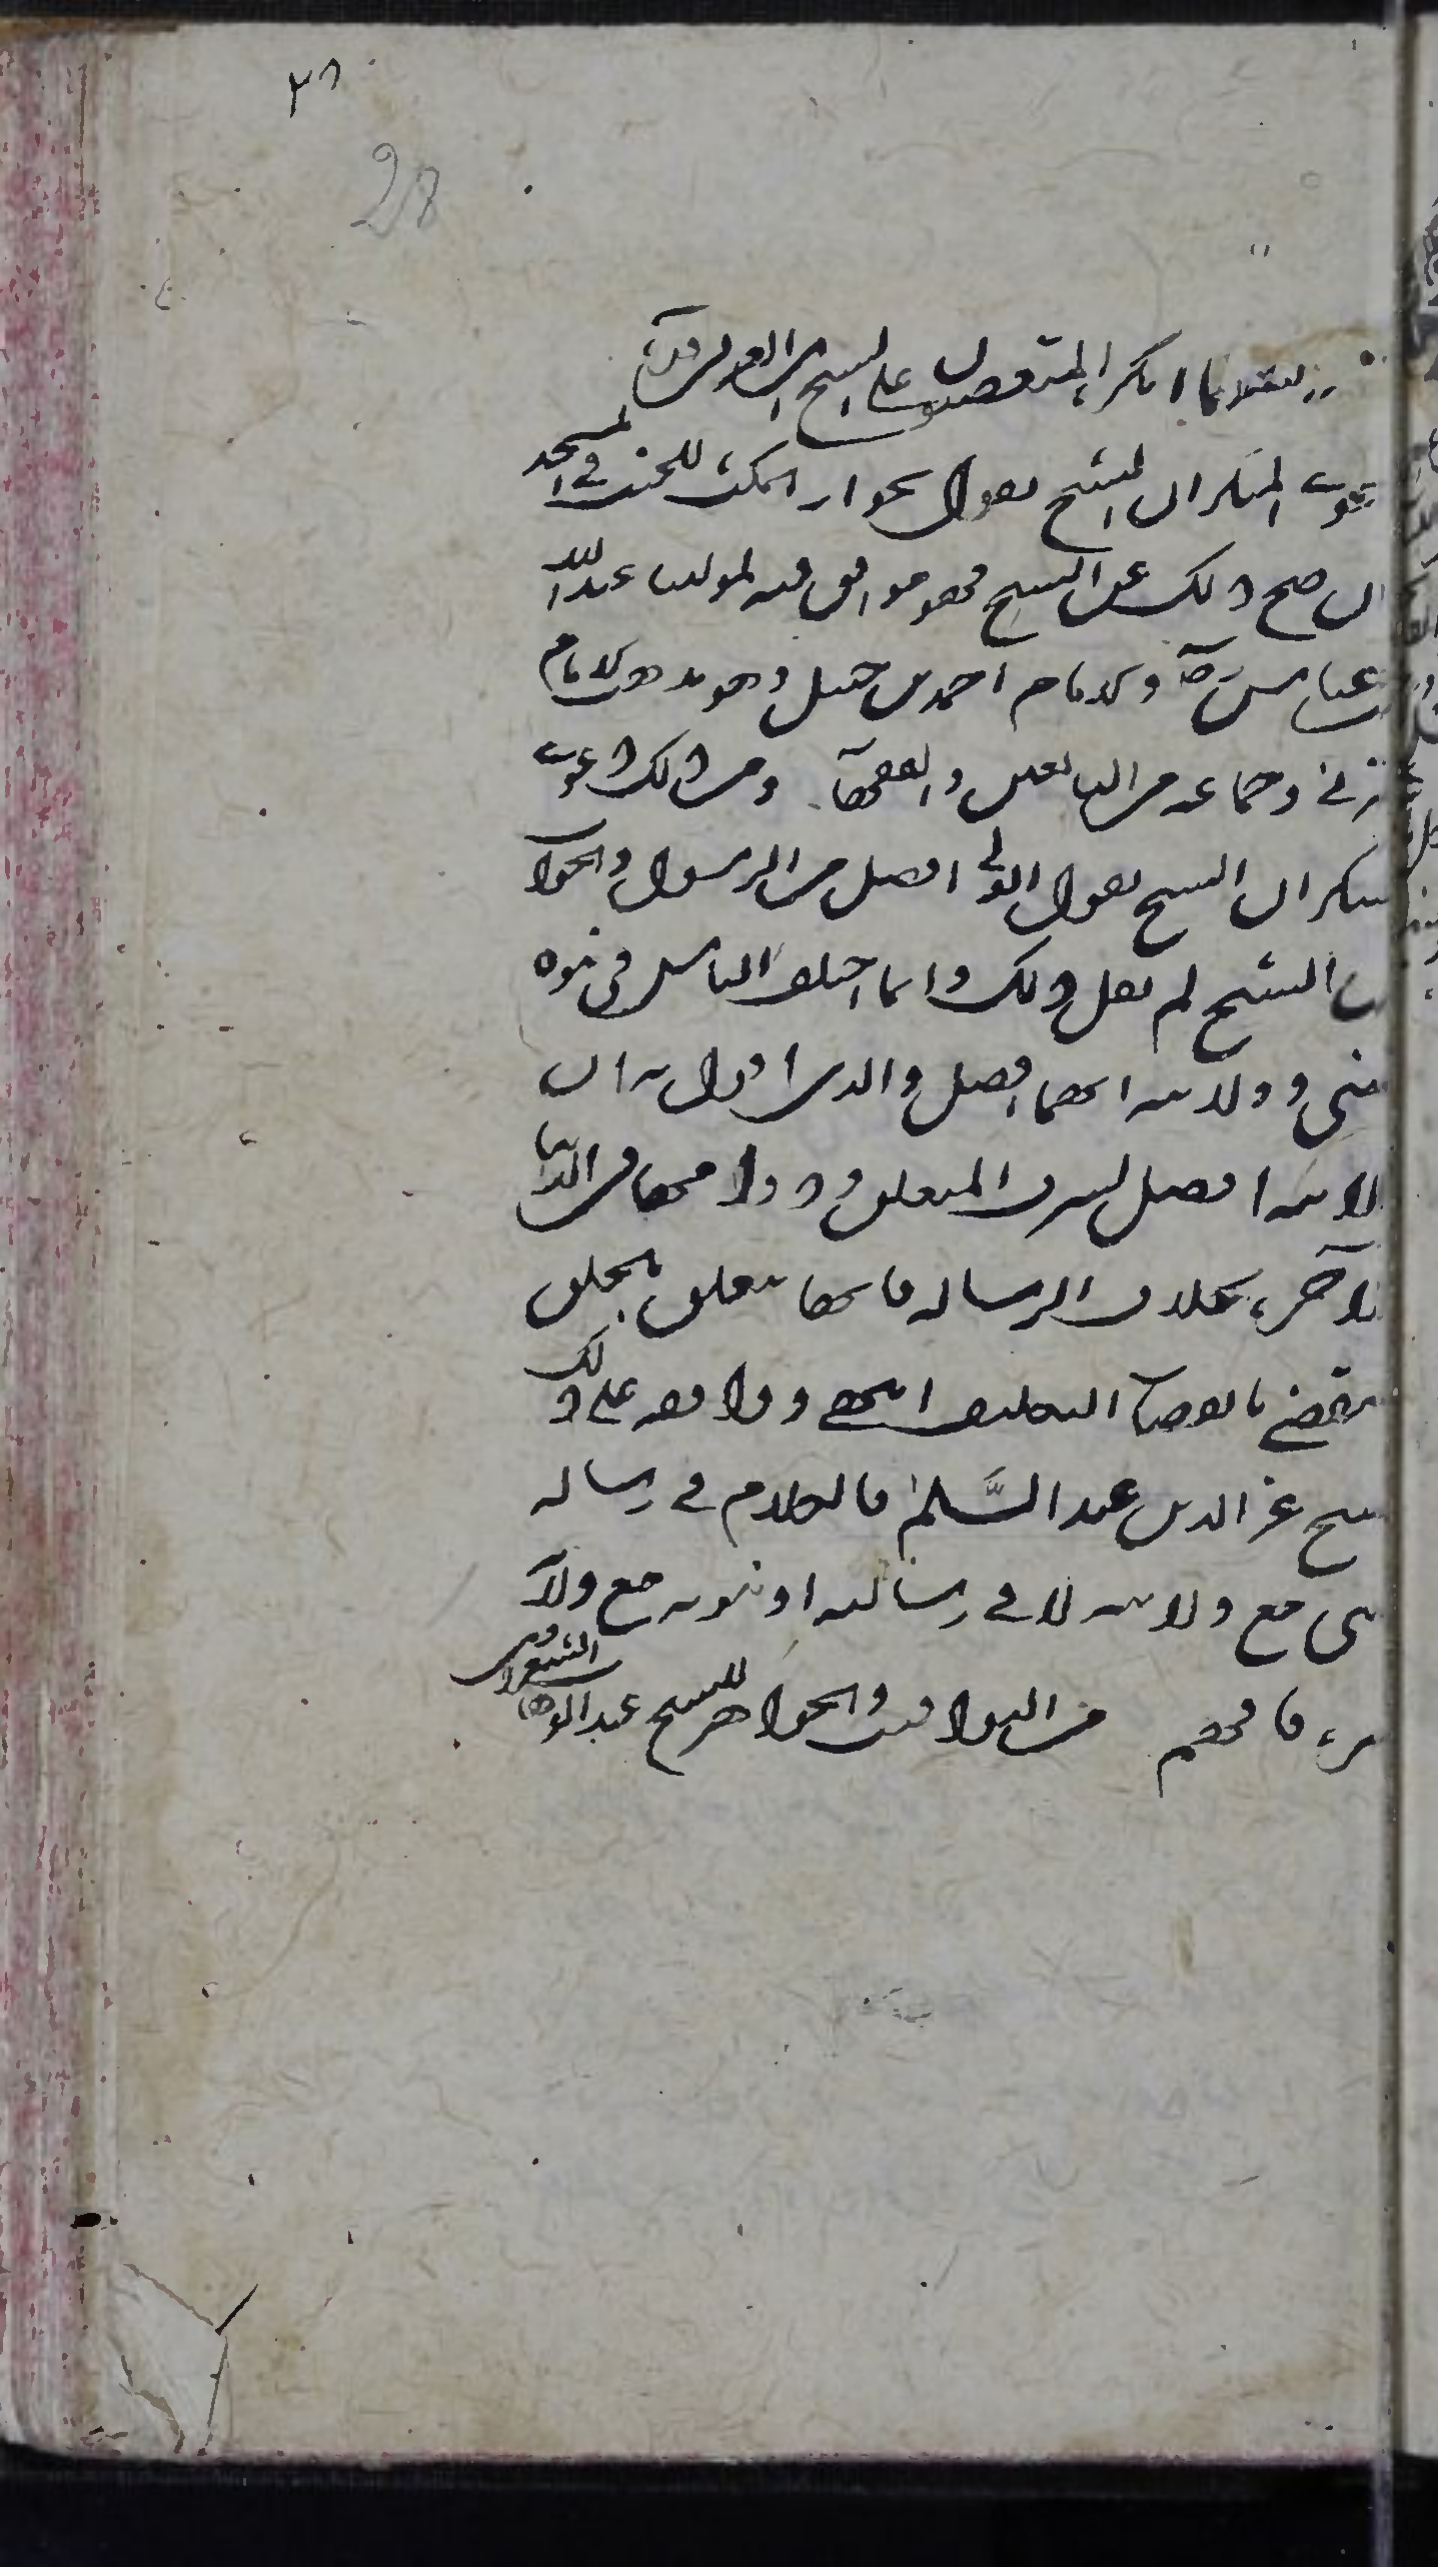 ٢٨
28
انكر المتعصبون على الشيخ من القول
المنكر ان الشيخ يقول بجواز المكث للجنب في المسجد
ان صح ذلك عن الشيخ فهو موافق فيه لمولينا عبد الله
عباس رضه والامام احمد بن حنبل وهو مذهب الامام
المزني وجماعة من التابعين والفقهآء ومن ذلك دعوى
المنكر ان الشيخ يقول الولي افضل من الرسول والجواب
ان الشيخ لم يقل ذلك وانما اختلف الناس في نبوة
النبي وولايته ايهما افضل والذي اقول به ان
ولايته افضل لشرف المتعلق ودوامها في الدنيا
والآخرة بخلاف الرسالة فانها تتعلق بالخلق
وتنقضي بانقضآء التكليف انتهى ووافقه على ذلك
الشيخ عز الدين عبد السلم فالكلام في رسالة
النبي مع ولايته لا في رسالته او نبوته مع ولاية
غيره فافهم من اليواقيت والجواهر للشيخ عبد الوهاب الشعراوي